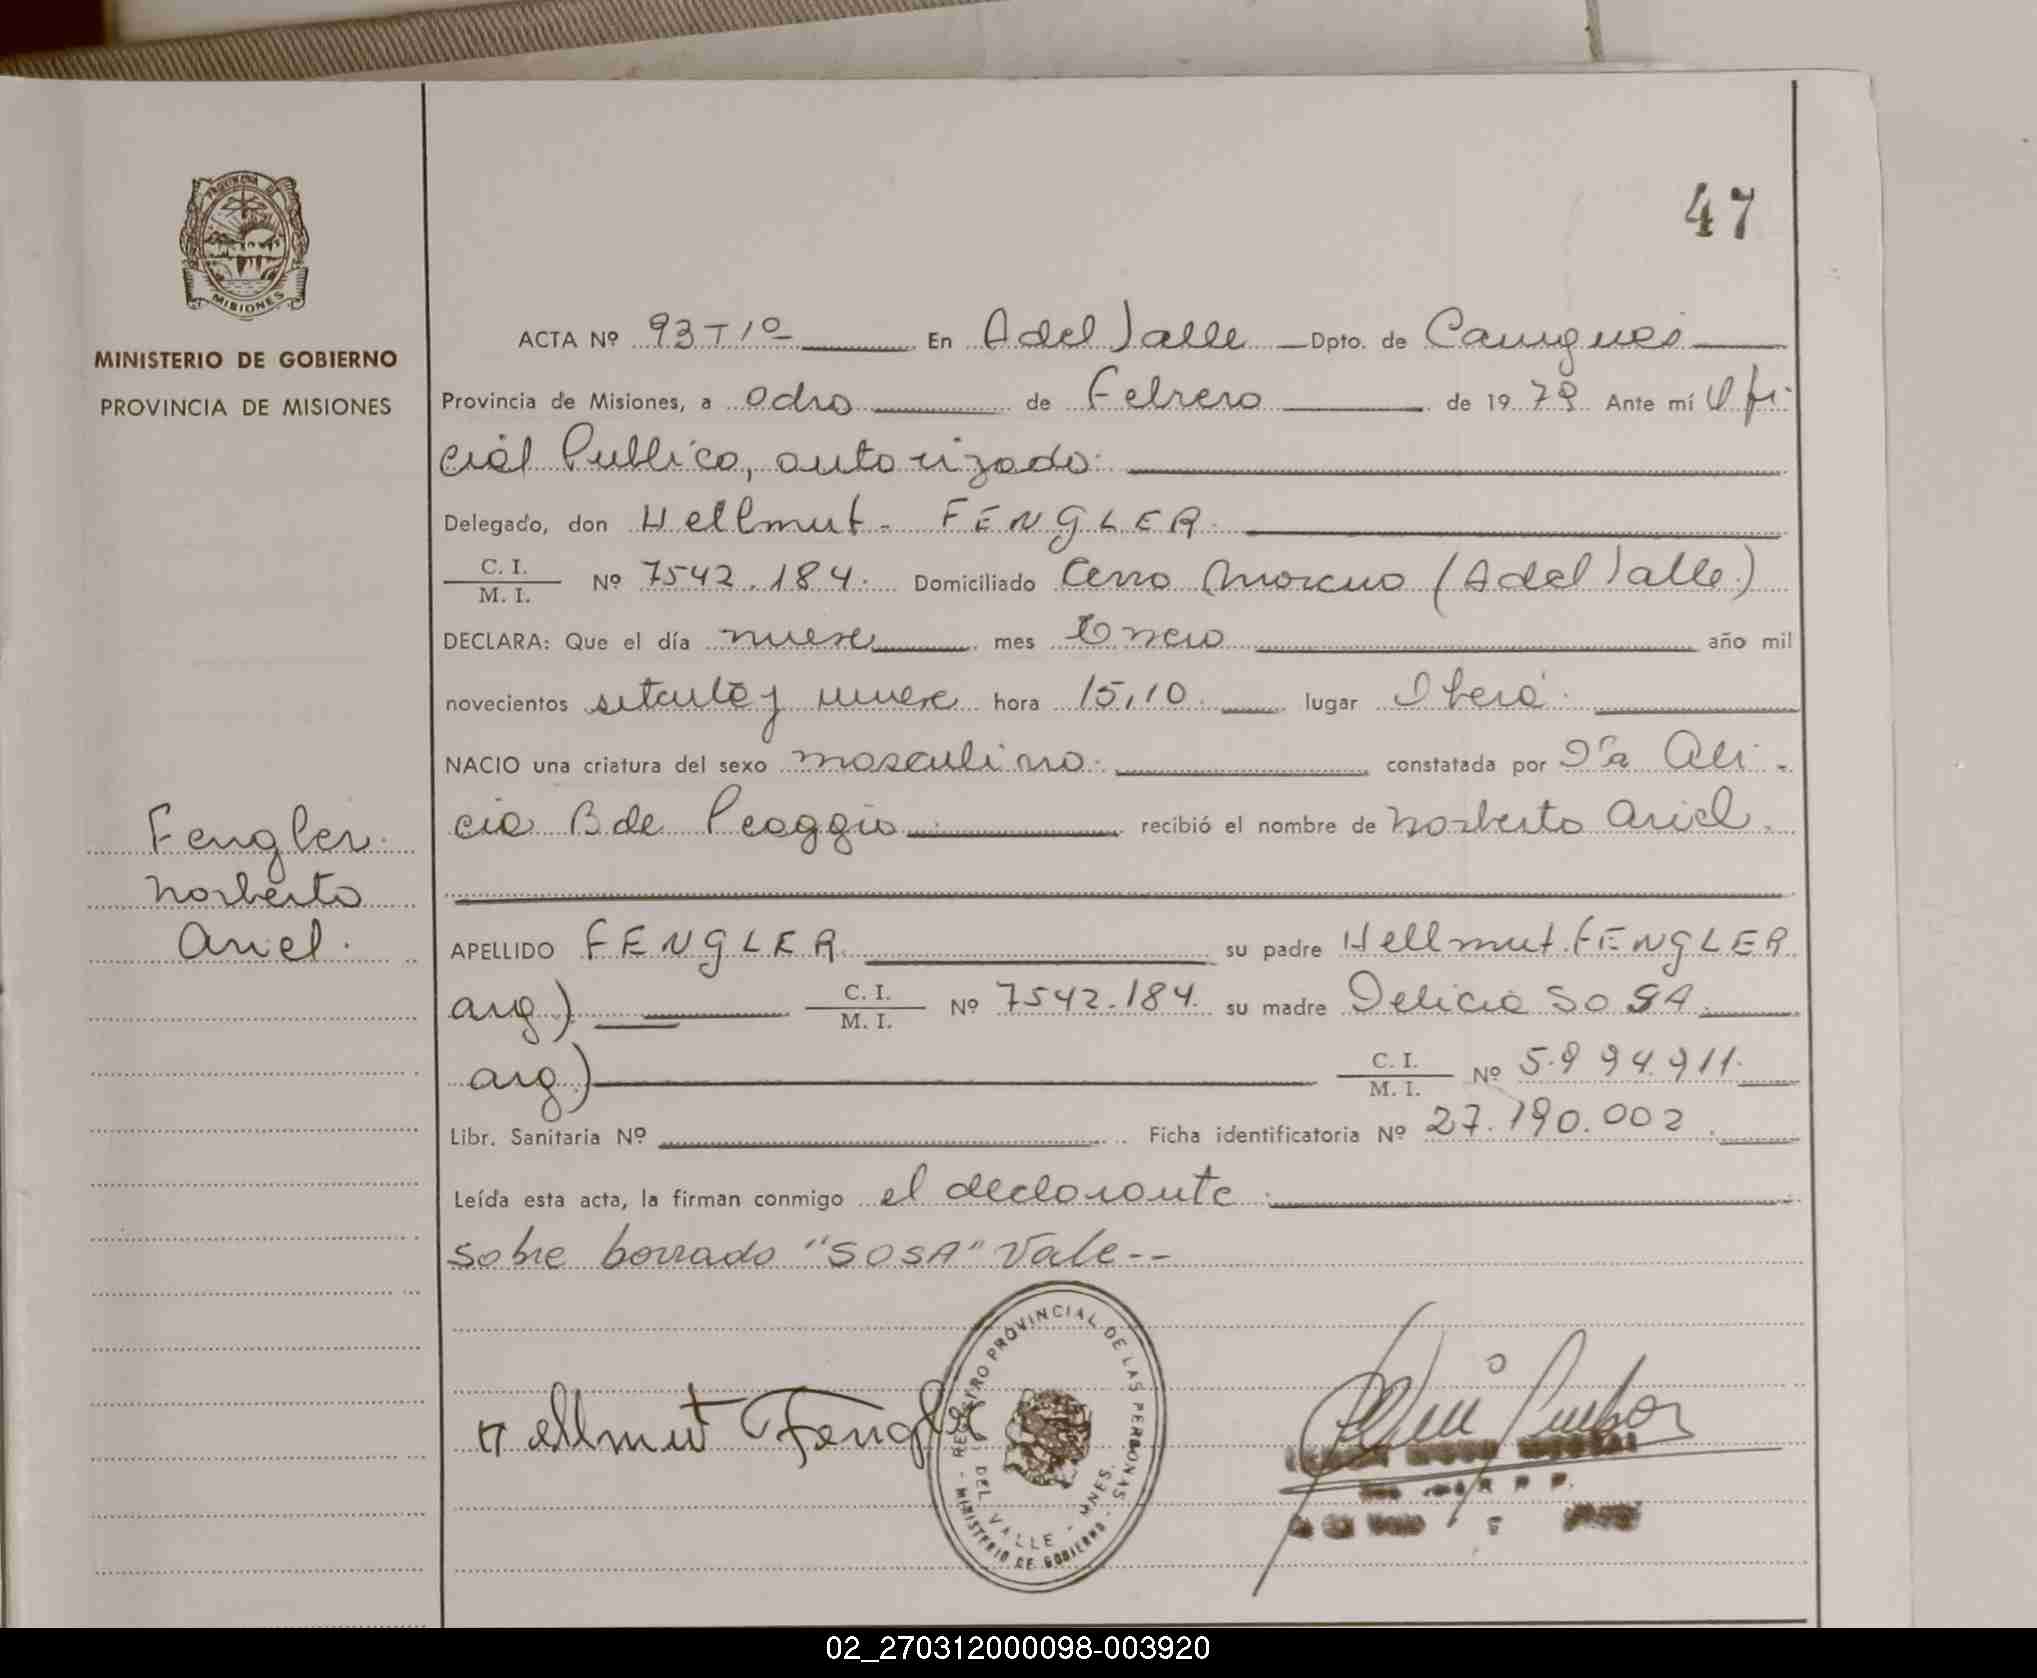 47
MISIONES
MINISTERIO DE GOBIERNO
PROVINCIA DE MISIONES
Fengler.
Norberto
Ariel.
ACTA Nº 93 T 1º En A del Valle Dpto. de Cainguás
Provincia de Misiones, a ocho de Febrero de 1979 Ante mí Ofi-
cial Publico, autorizado.
Delegado, don Hellmut. FENGLER.
C. I.
M. I. Nº 7542.184. Domiciliado Cerro Moreno (A del Valle.)
DECLARA: Que el día nueve mes Enero año mil
novecientos setenta y nueve hora 15,10. lugar Iberá.
NACIO una criatura del sexo masculino. constatada por Dra Ali-
cia B de Peaggio recibió el nombre de Norberto Ariel.
APELLIDO FENGLER su padre Hellmut. FENGLER
arg.) C. I.
M. I. Nº 7542.184. su madre Delicia SOSA.
arg.) C. I.
M. I. Nº 5.994.911.
Libr. Sanitaria Nº Ficha identificatoria Nº 27.190.002.
Leída esta acta, la firman conmigo el declarante.
Sobre borrado "SOSA" Vale--
Hellmut Fengler
REGISTRO PROVINCIAL DE LAS PERSONAS
DEL VALLE - MNES.
- MINISTERIO DE GOBIERNO -
02_270312000098-003920